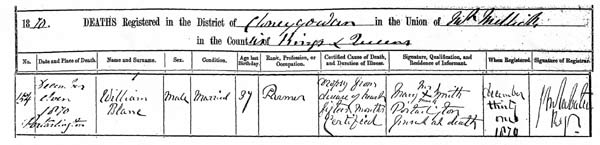 1870. DEATHS Registered in the District of Cloneygowan in the Union of Mt Mellick
in the Counties Kings & Queens
No. Date and Place of Death. Name and Surname. Sex. Condition. Age last Birthday Rank, Profession, or Occupation. Certified Cause of Death, and Duration of Illness. Signature, Qualification, and Residence of Informant. When Registered. Signature of Registrar.
December 1870 Portarlington
William Blanc
Male
Married
37
dropsy from disease of heart months Certified
Mary Smith Portarlington Present at death
December thirty one 1870